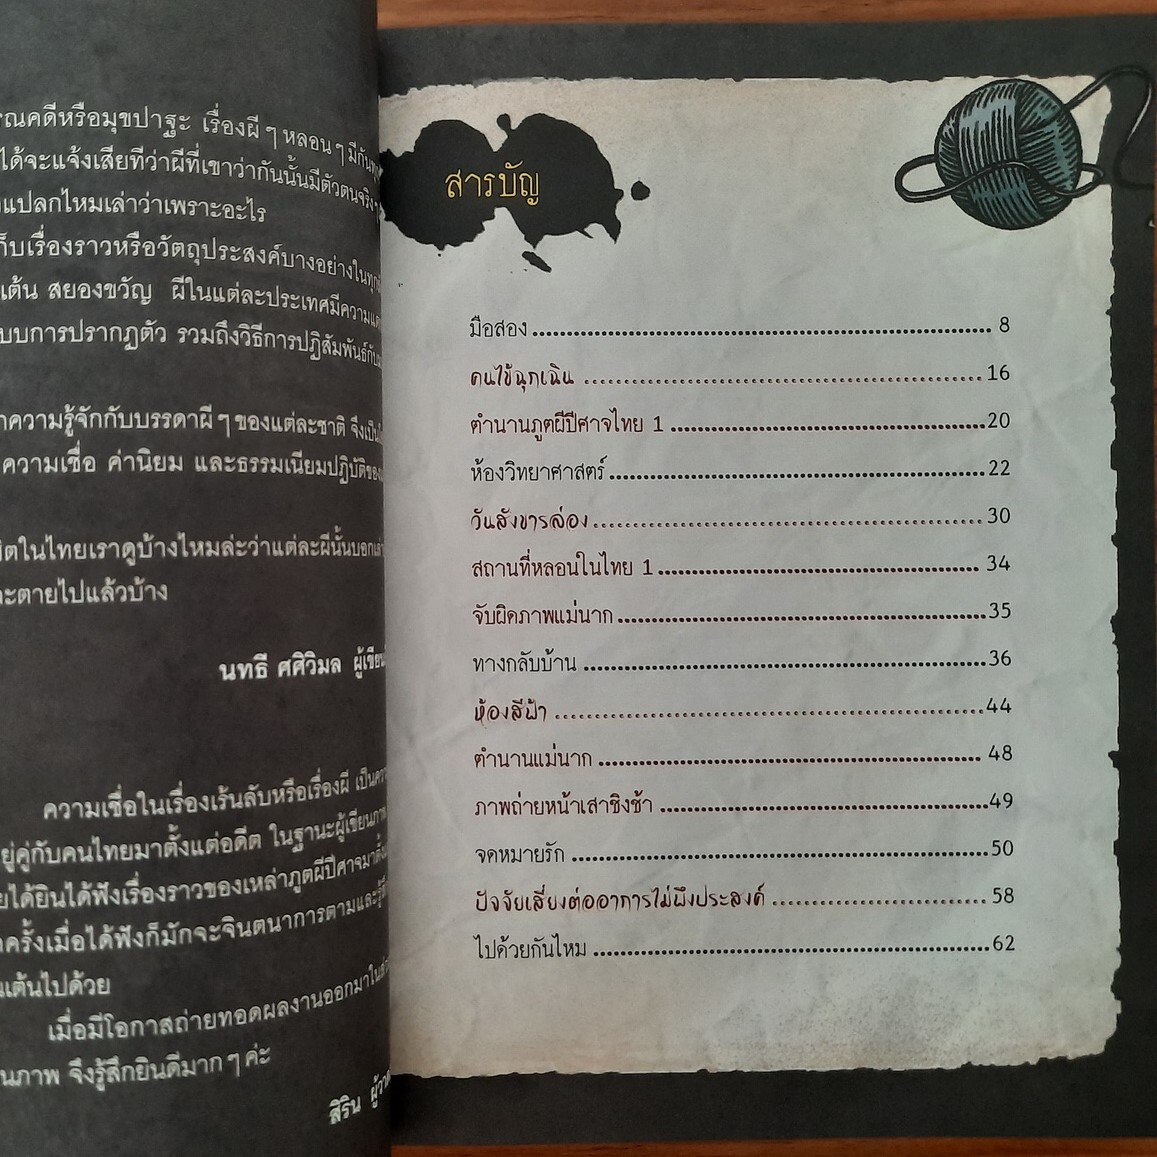 เรื่องผี ๆ หลอน ๆ
ได้จะแจ้งเสียทีว่าผีที่เขาว่ากันนั้นมีตัวตนจริง ๆ
แปลกไหมเล่าว่าเพราะอะไร
เรื่องราวหรือวัตถุประสงค์บางอย่างในทุก
เต้น สยองขวัญ ผีในแต่ละประเทศมีความ
การปรากฏตัว รวมถึงวิธีการปฏิสัมพันธ์
ความรู้จักกับบรรดาผี ๆ ของแต่ละชาติ จึงเป็น
ความเชื่อ ค่านิยม และธรรมเนียมปฏิบัติของ
ในไทยเราดูบ้างไหมล่ะว่าแต่ละผีนั้นบอกเล่า
ตายไปแล้วบ้าง
นทธี ศศิวิมล ผู้เขียน
ความเชื่อในเรื่องเร้นลับหรือเรื่องผี
คู่กับคนไทยมาตั้งแต่อดีต ในฐานะผู้เขียนภาพ
ได้ยินได้ฟังเรื่องราวของเหล่าภูตผีปีศาจมา
ครั้งเมื่อได้ฟังก็มักจะจินตนาการตามและ
เต้นไปด้วย
เมื่อมีโอกาสถ่ายทอดผลงานออกมาใน
ภาพ จึงรู้สึกยินดีมาก ๆ ค่ะ
สิริน ผู้วาด
สารบัญ
มือสอง 8
คนไข้ฉุกเฉิน 16
ตำนานภูตผีปีศาจไทย 1 20
ห้องวิทยาศาสตร์ 22
วันสังขารล่อง 30
สถานที่หลอนในไทย 1 34
จับผิดภาพแม่นาก 35
ทางกลับบ้าน 36
ห้องสีฟ้า 44
ตำนานแม่นาก 48
ภาพถ่ายหน้าเสาชิงช้า 49
จดหมายรัก 50
ปัจจัยเสี่ยงต่ออาการไม่พึงประสงค์ 58
ไปด้วยกันไหม 62